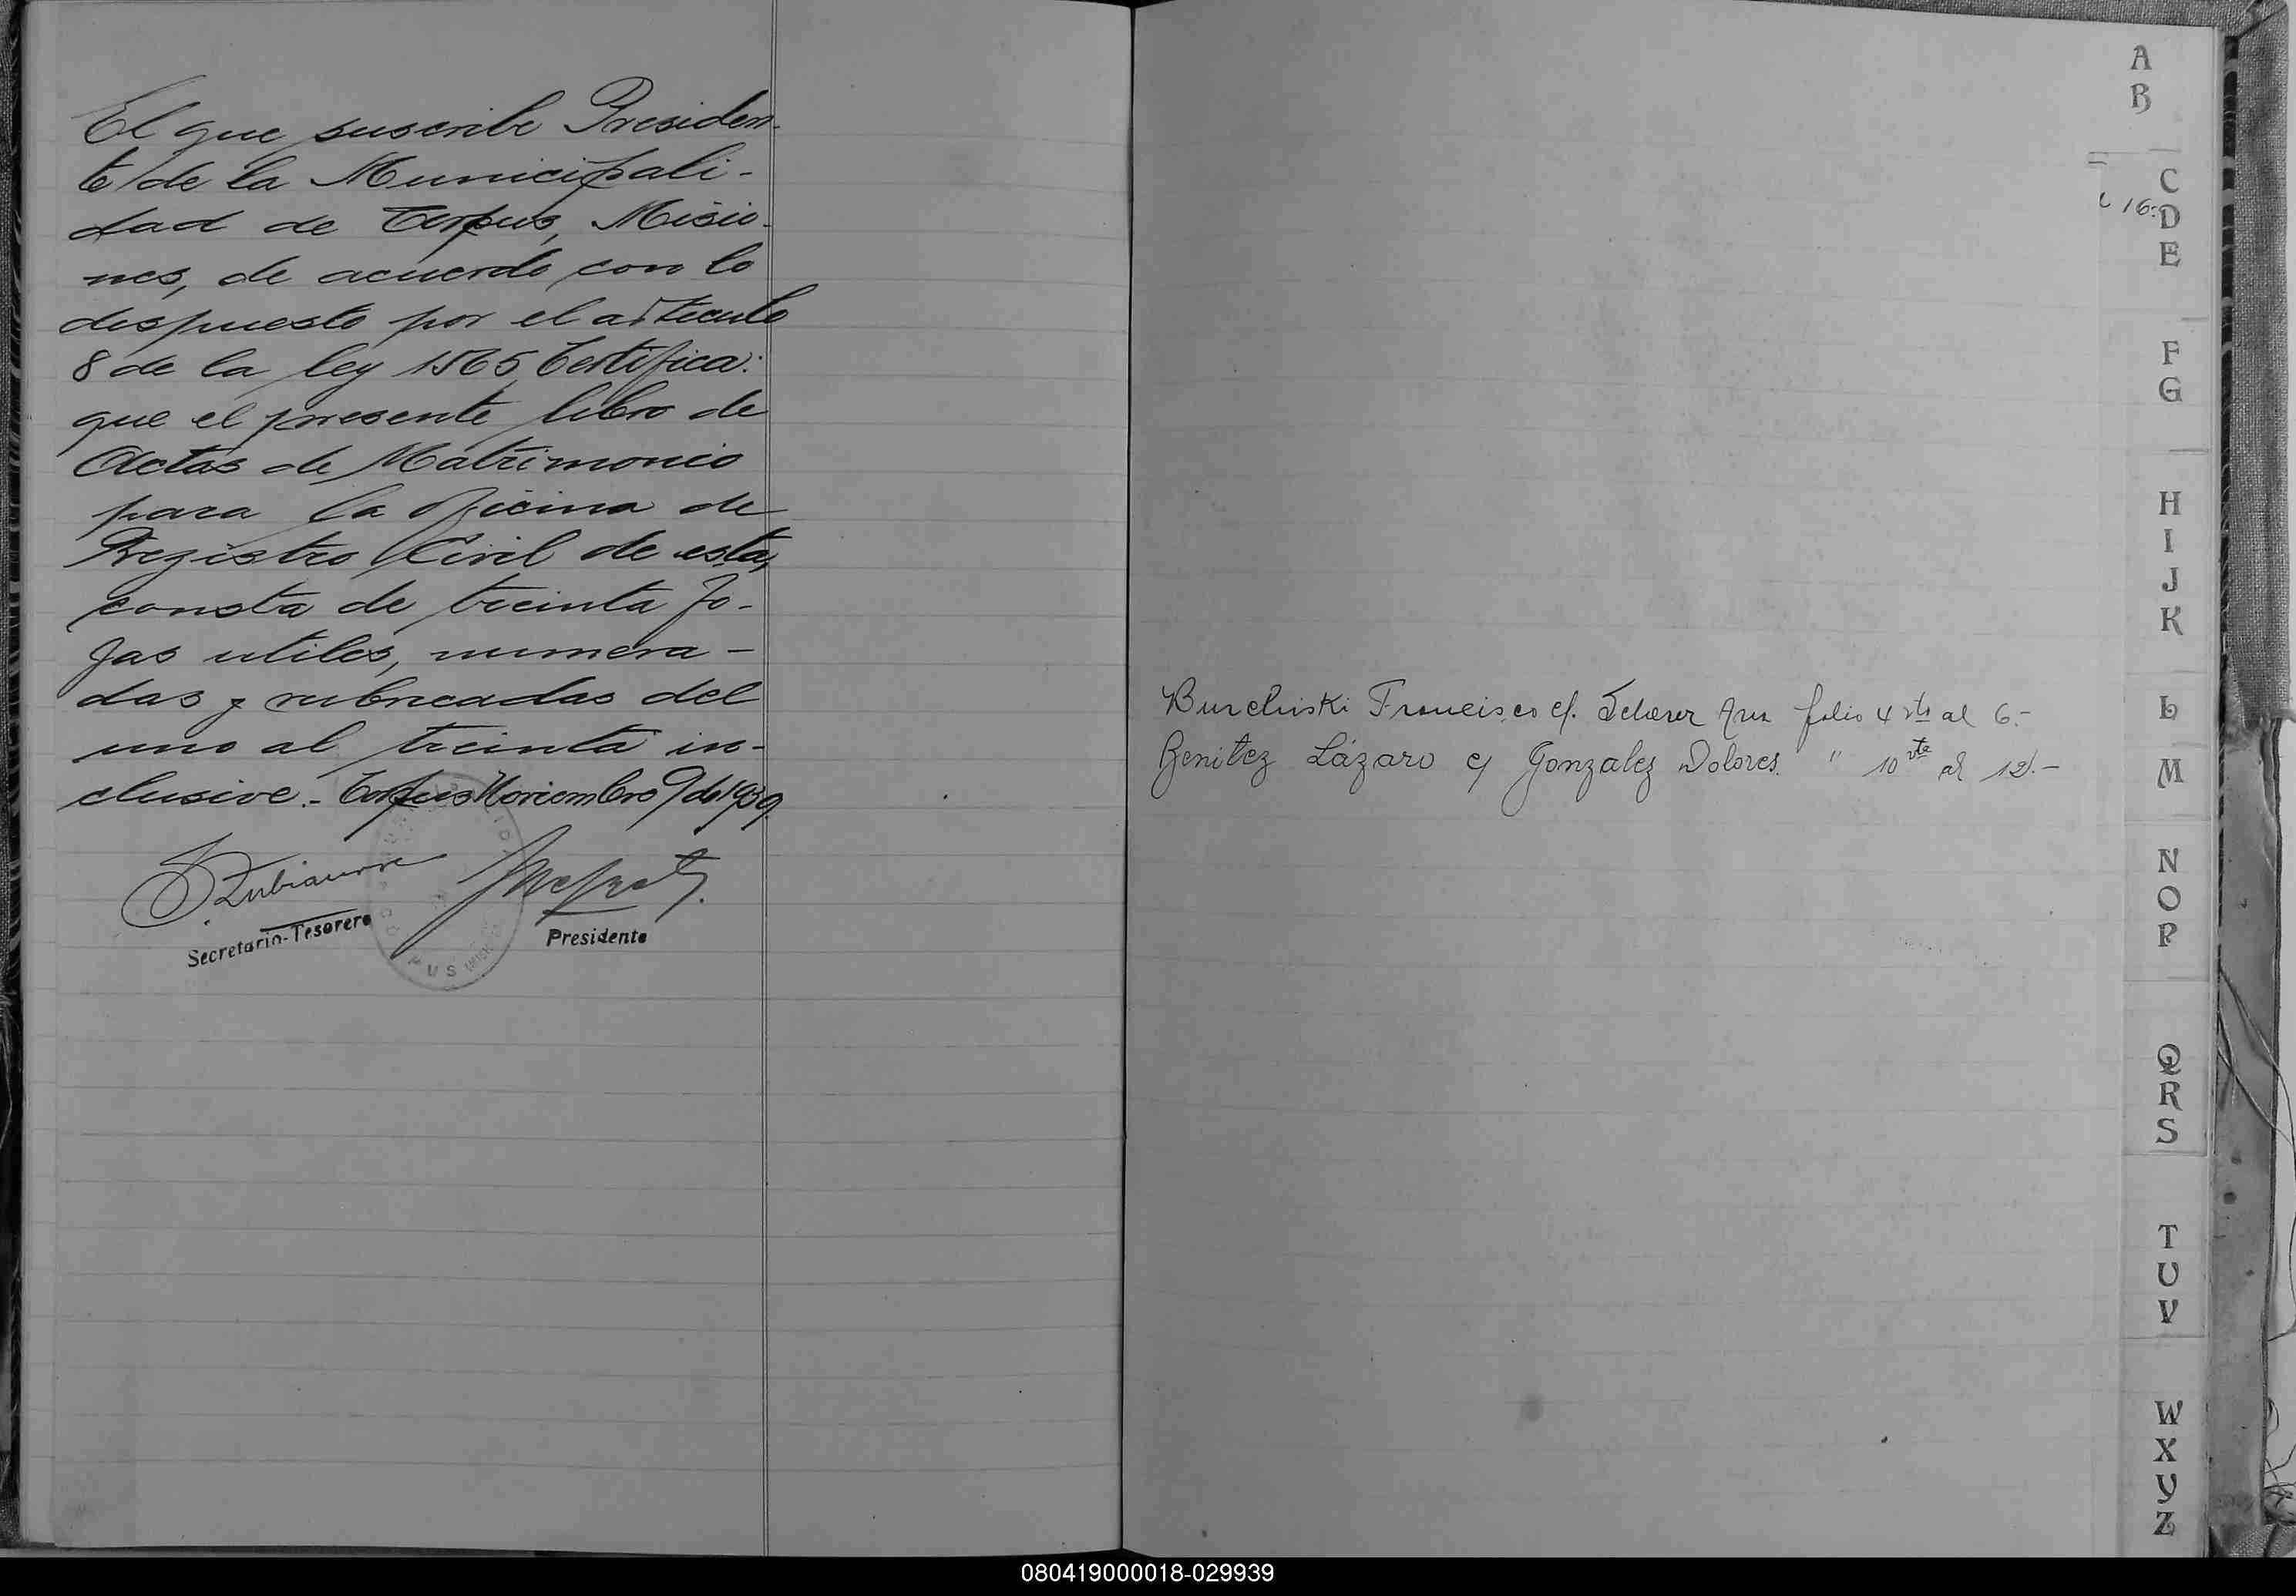 El que suscribe Presiden-
te de la Municipali-
dad de Corpus, Misio-
nes, de acuerdo con lo
dispuesto por el articulo
8 de la ley 1565 Certifica:
que el presente libro de
Actas de Matrimonio
para la oficina de
Registro Civil de esta,
consta de treinta fo-
jas utiles, numera-
das y rubricadas del
uno al treinta in-
clusive.- Corpus Noviembre 9 de 1939.
Secretario-Tesorero
Presidente
A
B
C
16.-
D
E
F
G
H
I
J
K
L
M
N
O
P
Q
R
S
T
U
V
W
X
Y
Z
Burchiski Francisco c/. Scherer Ana folio 4 vto al 6.-
Benitez Lázaro c/ Gonzalez Dolores. " 10 vto al 12.-
080419000018-029939